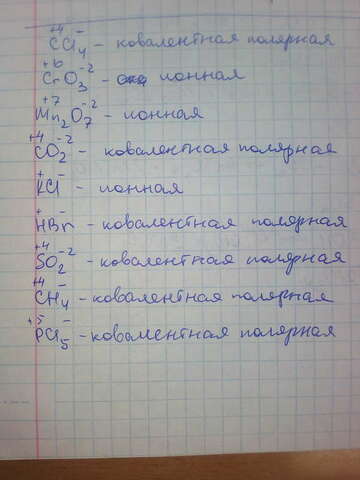 +4 -
CCl4 - ковалентная полярная
+6 -2
CrO3 - ионная
+7 -2
Mn2O7 - ионная
+4 -2
CO2 - ковалентная полярная
+ -
KCl - ионная
+ -
HBr - ковалентная полярная
+4 -2
SO2 - ковалентная полярная
+4 -
CH4 - ковалентная полярная
+5 -
PCl5 - ковалентная полярная